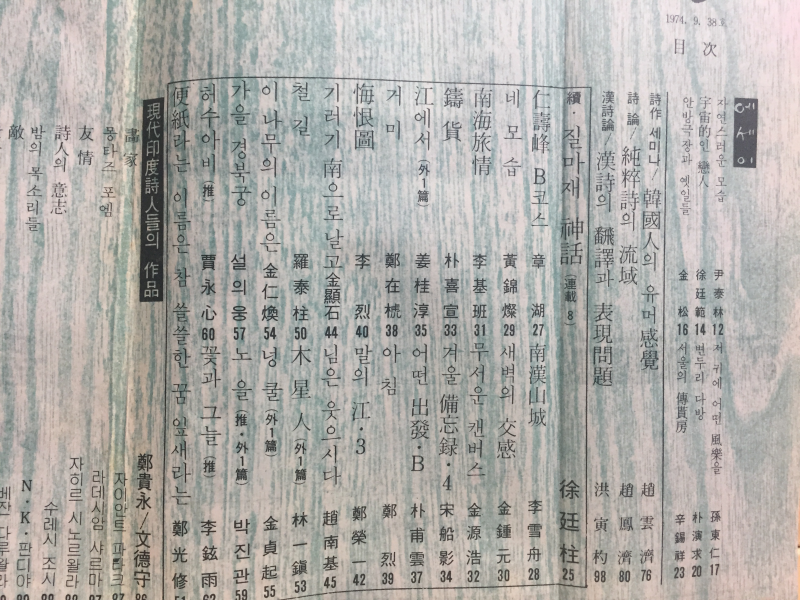 1974. 9. 38호
目次
에세이
자연스러운 모습 尹泰林 12 저 귀에 어떤 風樂을 孫東仁 17
宇宙的인 戀人 徐廷範 14 변두리 다방 朴演求 20
안방극장과 옛일들 金松 16 서울의 傳貰房 辛錫祥 23
詩作 세미나/韓國人의 유머感覺 趙雲濟 76
詩論/純粹詩의 流域 趙鳳濟 80
漢詩論/漢詩의 飜譯과 表現問題 洪寅杓 98
續·질마재 神話(連載 8) 徐廷柱 25
仁壽峰 B코스 章湖 27 南漢山城 李雪舟 28
네 모습 黃錦燦 29 새벽의 交感 金鍾元 30
南海旅情 李基班 31 무서운 캔버스 金源浩 32
鑄貨 朴喜宣 33 겨울 備忘録·4 宋船影 34
江에서(外1篇) 姜桂淳 35 어떤 出發·B 朴甫雲 37
거미 鄭在虎 38 아침 鄭烈 39
悔恨圖 李烈 40 말의 江·3 鄭榮一 42
기러기 南으로 날고 金顯石 44 님은 웃으시다 趙南基 45
철길 羅泰柱 50 木星人(外1篇) 林一鎭 53
이 나무의 이름은 金仁煥 54 넝쿨(外1篇) 金貞起 55
가을 경북궁 설의웅 57 노을(推·外1篇) 박진관 59
허수아비(推) 賈永心 60 꽃과 그늘(推) 李鉉雨 62
便紙라는 이름은 참 쓸쓸한 꿈 잎새라는 鄭光修 51
現代印度詩人들의 作品
鄭貴永/文德守 86
畵家 자이안트 파타크 87
몽타즈 포엠 라데시암 샤르마 87
友情 자히르 시노르왈라 88
詩人의 意志 수레시 조시 88
밤의 목소리들 N·K·판디야 89
敵 베잔 다루왈라